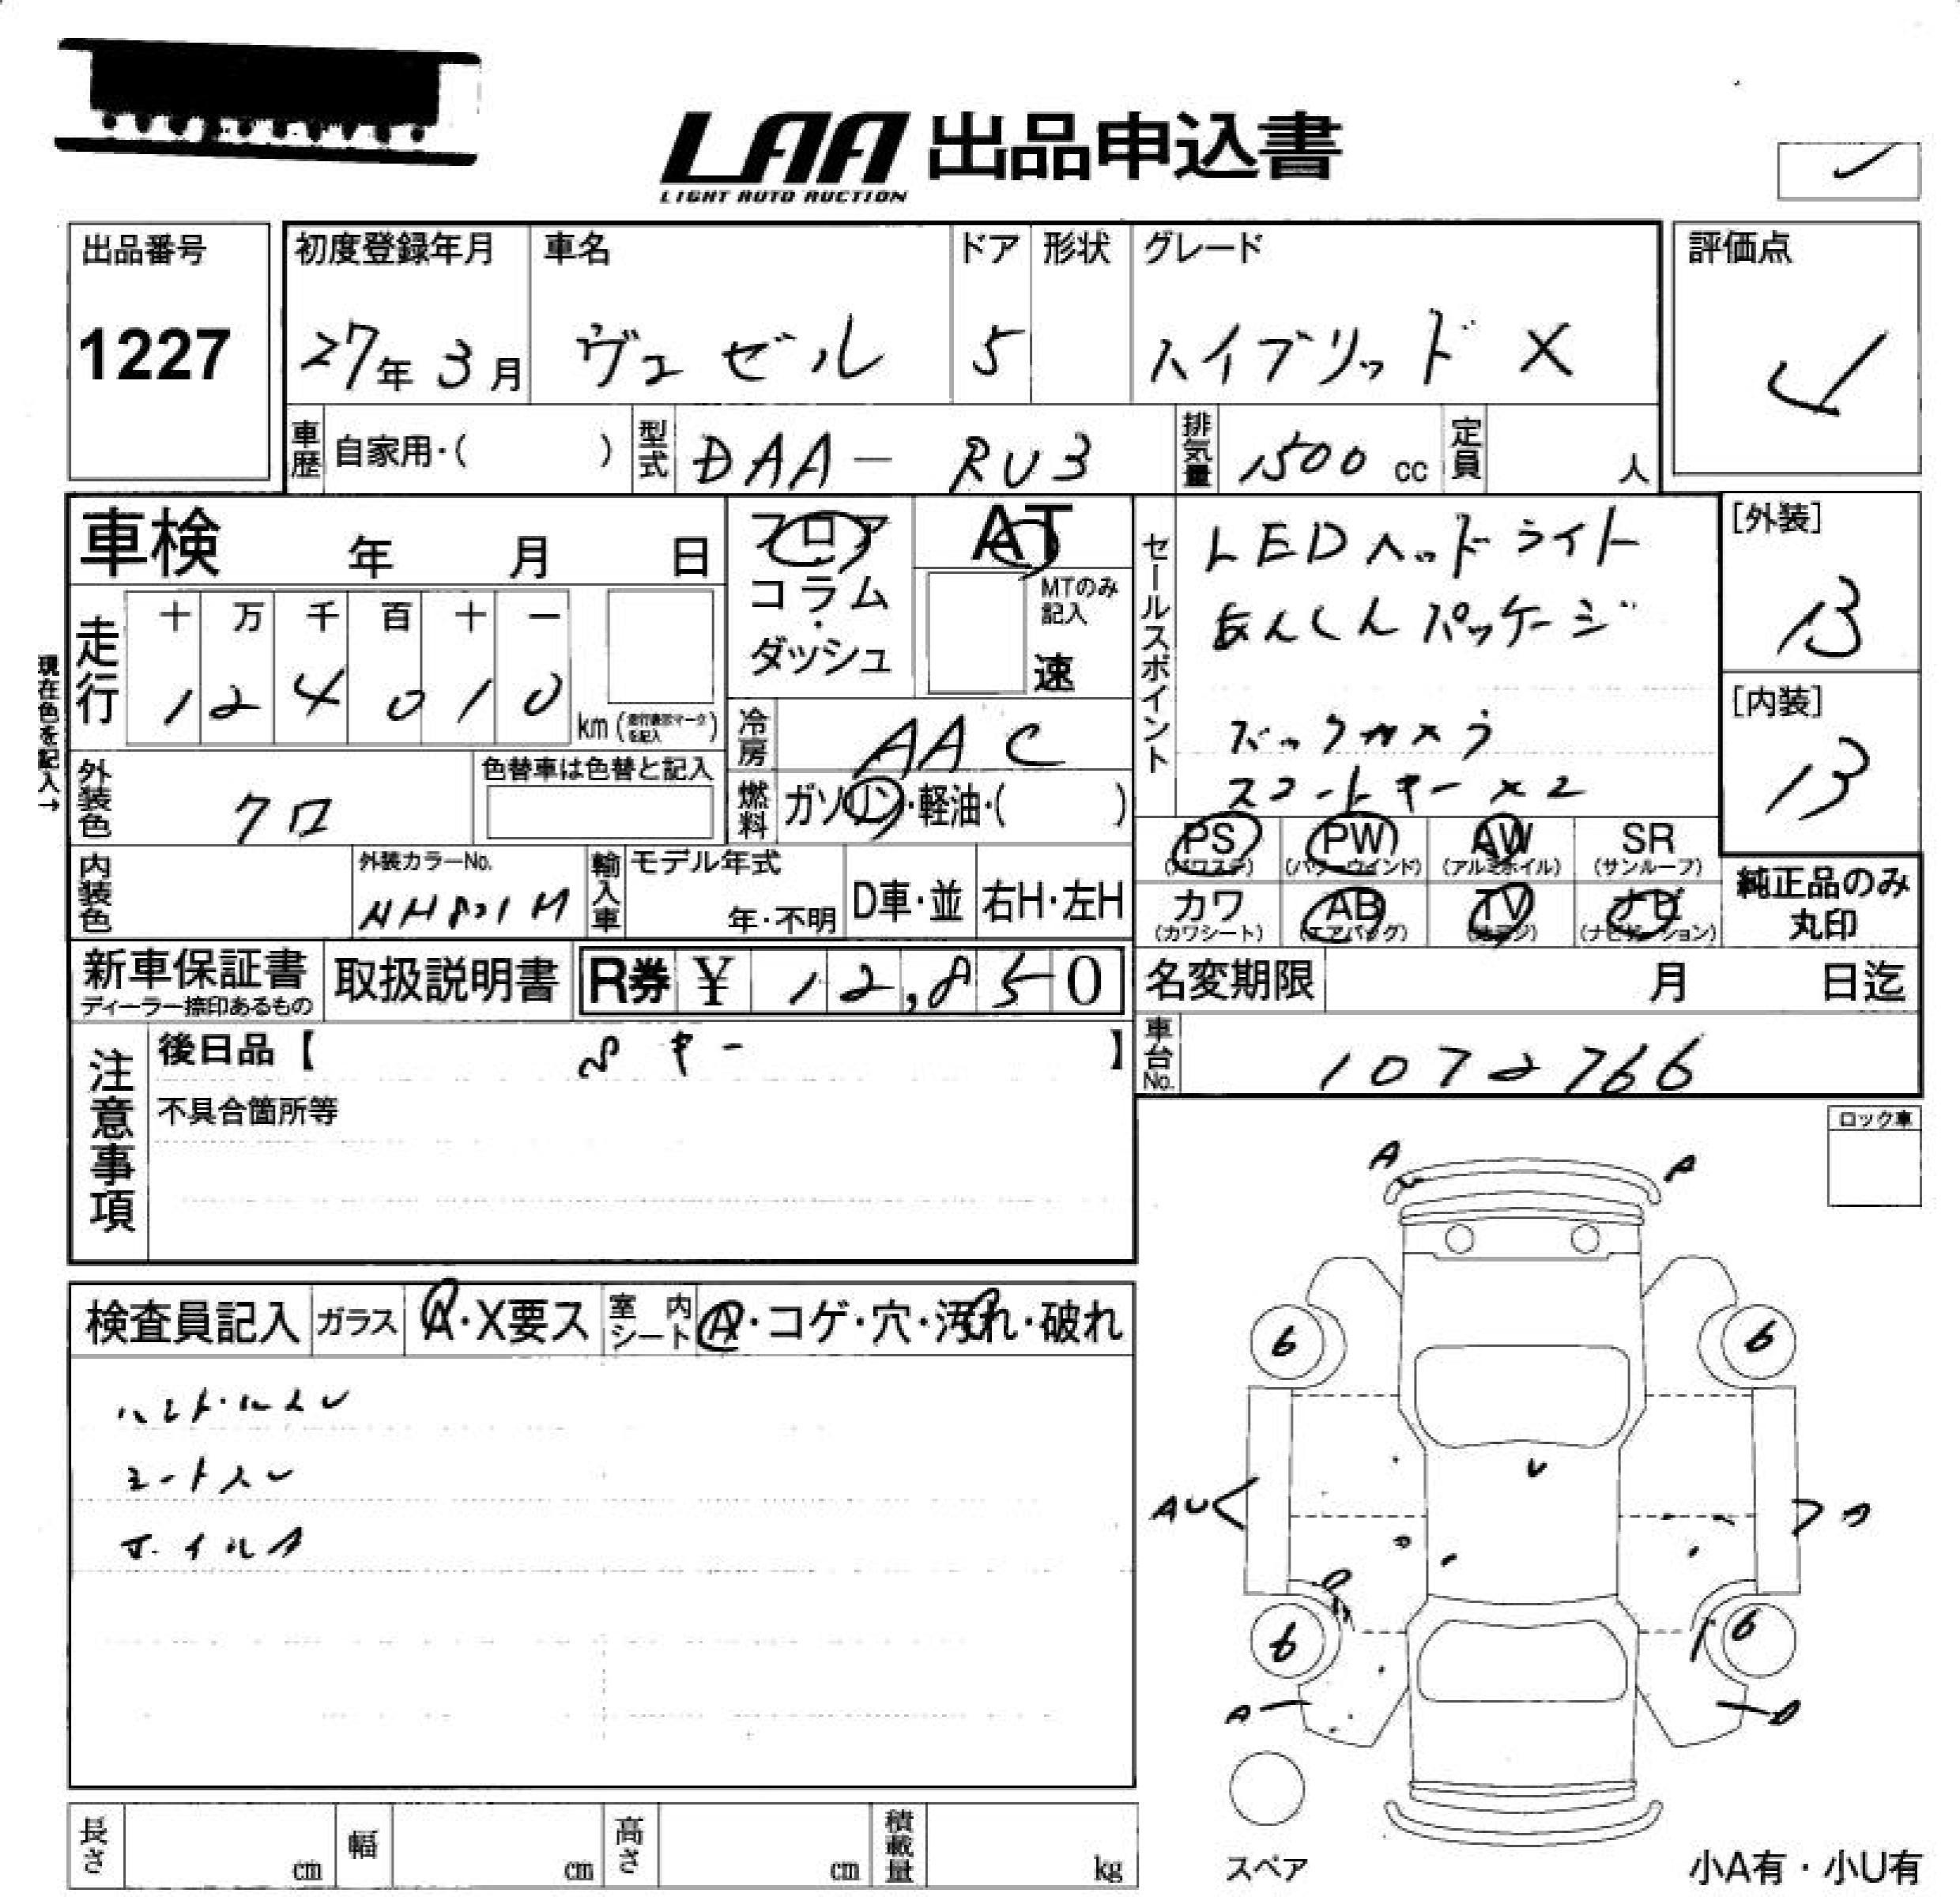 LAA 出品申込書
LIGHT AUTO AUCTION
出品番号
1227
初度登録年月 車名 ドア 形状 グレード
27年 3月 ヴェゼル 5 ハイブリッド X
評価点
4
車歴 自家用・( ) 型式 DAA- RU3 排気量 1500 cc 定員 人
車検 年 月 日
フロア
コラム
・
ダッシュ
AT
MTのみ
記入
速
セールスポイント
LEDヘッドライト
あんしんパッケージ
バックカメラ
スマートキー×2
[外装]
B
[内装]
B
現在色を記入→
走行
十 万 千 百 十 一
1 2 4 0 1 0
km (走行表示マークを記入)
冷房 AAC
外装色 クロ 色替車は色替と記入
燃料 ガソリン・軽油・( )
PS (パワステ) PW (パワーウインド) AW (アルミホイル) SR (サンルーフ)
カワ (カワシート) AB (エアバッグ) TV ナビ (ナビゲーション)
純正品のみ
丸印
内装色 外装カラーNo. 輸入車 モデル年式
NH821M
年・不明 D車・並 右H・左H
新車保証書 取扱説明書 R券 ¥ 12,850
ディーラー捺印あるもの
名変期限 月 日迄
注意事項
後日品【 Sキー 】
不具合箇所等
車台No. 1072766
ロック車
A A
検査員記入 ガラス A・X要ス 室内シート A・コゲ・穴・汚れ・破れ
ハンドルスレ
シートスレ
ホイルA
6 6
U
AU
A
6 6
A
スペア
長さ cm 幅 cm 高さ cm 積載量 kg
小A有・小U有